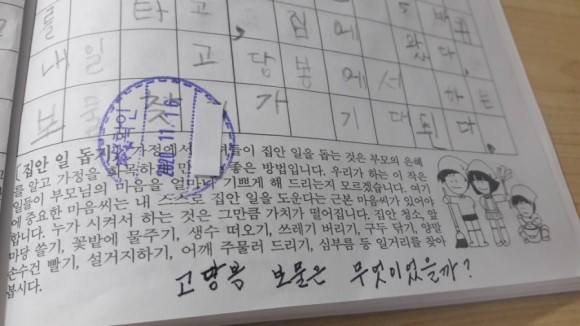 들 타고, 집에
왔다.
내일 고당봉에서 하는
보물찾 가 기대된다.
2020.11.16
[집안 일 돕기] 가정에서 들이 집안 일을 돕는 것은 부모의 은혜
를 알고 가정을 화목하 만 좋은 방법입니다. 우리가 하는 이 작은
일들이 부모님의 마음을 얼마나 기쁘게 해 드리는지 모르겠습니다. 여기
에 중요한 마음씨는 내 스스로 집안 일을 도운다는 근본 마음씨가 있어야
합니다. 누가 시켜서 하는 것은 그만큼 가치가 떨어집니다. 집안 청소, 앞
마당 쓸기, 꽃밭에 물주기, 생수 떠오기, 쓰레기 버리기, 구두 닦기, 양말
손수건 빨기, 설거지하기, 어깨 주물러 드리기, 심부름 등 일거리를 찾아
봅시다.
고당봉 보물은 무엇이었을까?